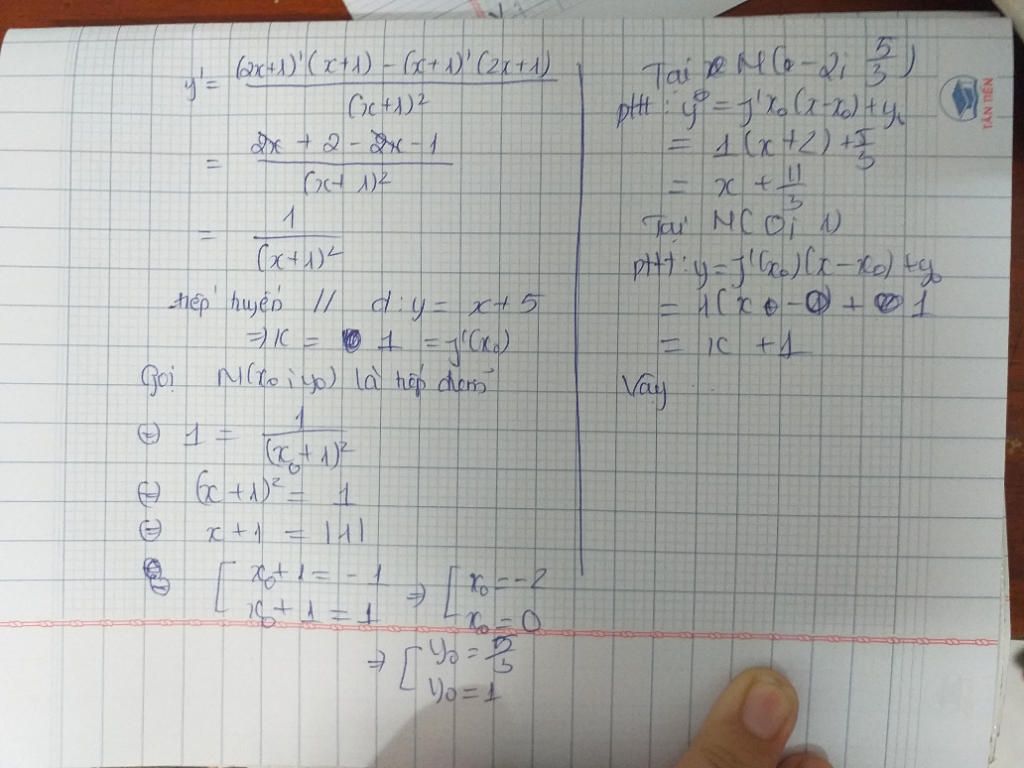 y' = ((2x+1)'(x+1) - (x+1)'(2x+1))/(x+1)²
= (2x + 2 - 2x - 1)/(x+1)²
= 1/(x+1)²
tiếp tuyến // d: y = x + 5
=> K = 1 = f'(x₀)
Gọi M(x₀; y₀) là tiếp điểm
⇔ 1 = 1/(x₀+1)²
⇔ (x+1)² = 1
⇔ x + 1 = |1|
[ x₀+1 = -1 => [ x₀ = -2
x₀ + 1 = 1 x₀ = 0
=> [ y₀ = 5/3
y₀ = 1
Tại M(-2; 5/3)
ptt: y = f'x₀(x-x₀)+y₀
= 1(x+2)+5/3
= x + 11/3
Tại M(0; 1)
ptt: y = f'(x₀)(x-x₀)+y₀
= 1(x - 0) + 1
= x + 1
Vậy ...
TÂN TIẾN